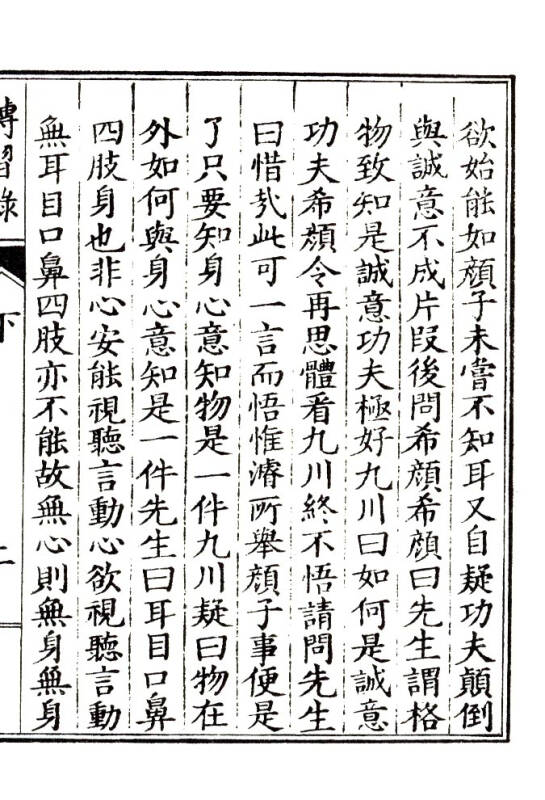 欲始能如顏子未嘗不知耳又自疑功夫顛倒
與誠意不成片段後問希顏希顏曰先生謂格
物致知是誠意功夫極好九川曰如何是誠意
功夫希顏令再思體看九川終不悟請問先生
曰惜㢤此可一言而悟惟濬所舉顏子事便是
了只要知身心意知物是一件九川疑曰物在
外如何與身心意知是一件先生曰耳目口鼻
四肢身也非心安能視聽言動心欲視聽言動
無耳目口鼻四肢亦不能故無心則無身無身
傳習錄
下
二